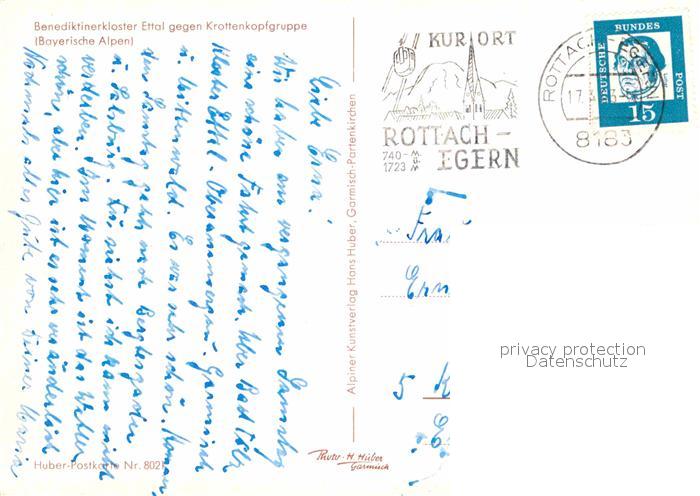 Benediktinerkloster Ettal gegen Krottenkopfgruppe
(Bayerische Alpen)
KURORT
ROTTACH-
EGERN
740-
1723
ROTTACH-
17.
8183
DEUTSCHE BUNDESPOST
15
Liebe Erna!
Wir haben am vergangenen Samstag
eine schöne Fahrt gemacht. Über Bad Tölz
Kloster Ettal - Oberammergau - Garmisch
u. Mittenwald. Es war sehr schön. Kommen-
den Samstag geht nach Berchtesgaden
u. Salzburg. Du siehst ich kann
verderben. Im Moment ist das Wetter
schön, aber hier ist es sehr veränderlich
Nochmals alles Gute von Deiner Maria
Alpiner Kunstverlag Hans Huber, Garmisch-Partenkirchen
Frau
Ern
5 K
privacy protection
Datenschutz
Huber-Postkarte Nr. 802
Photo-H. Huber
Garmisch